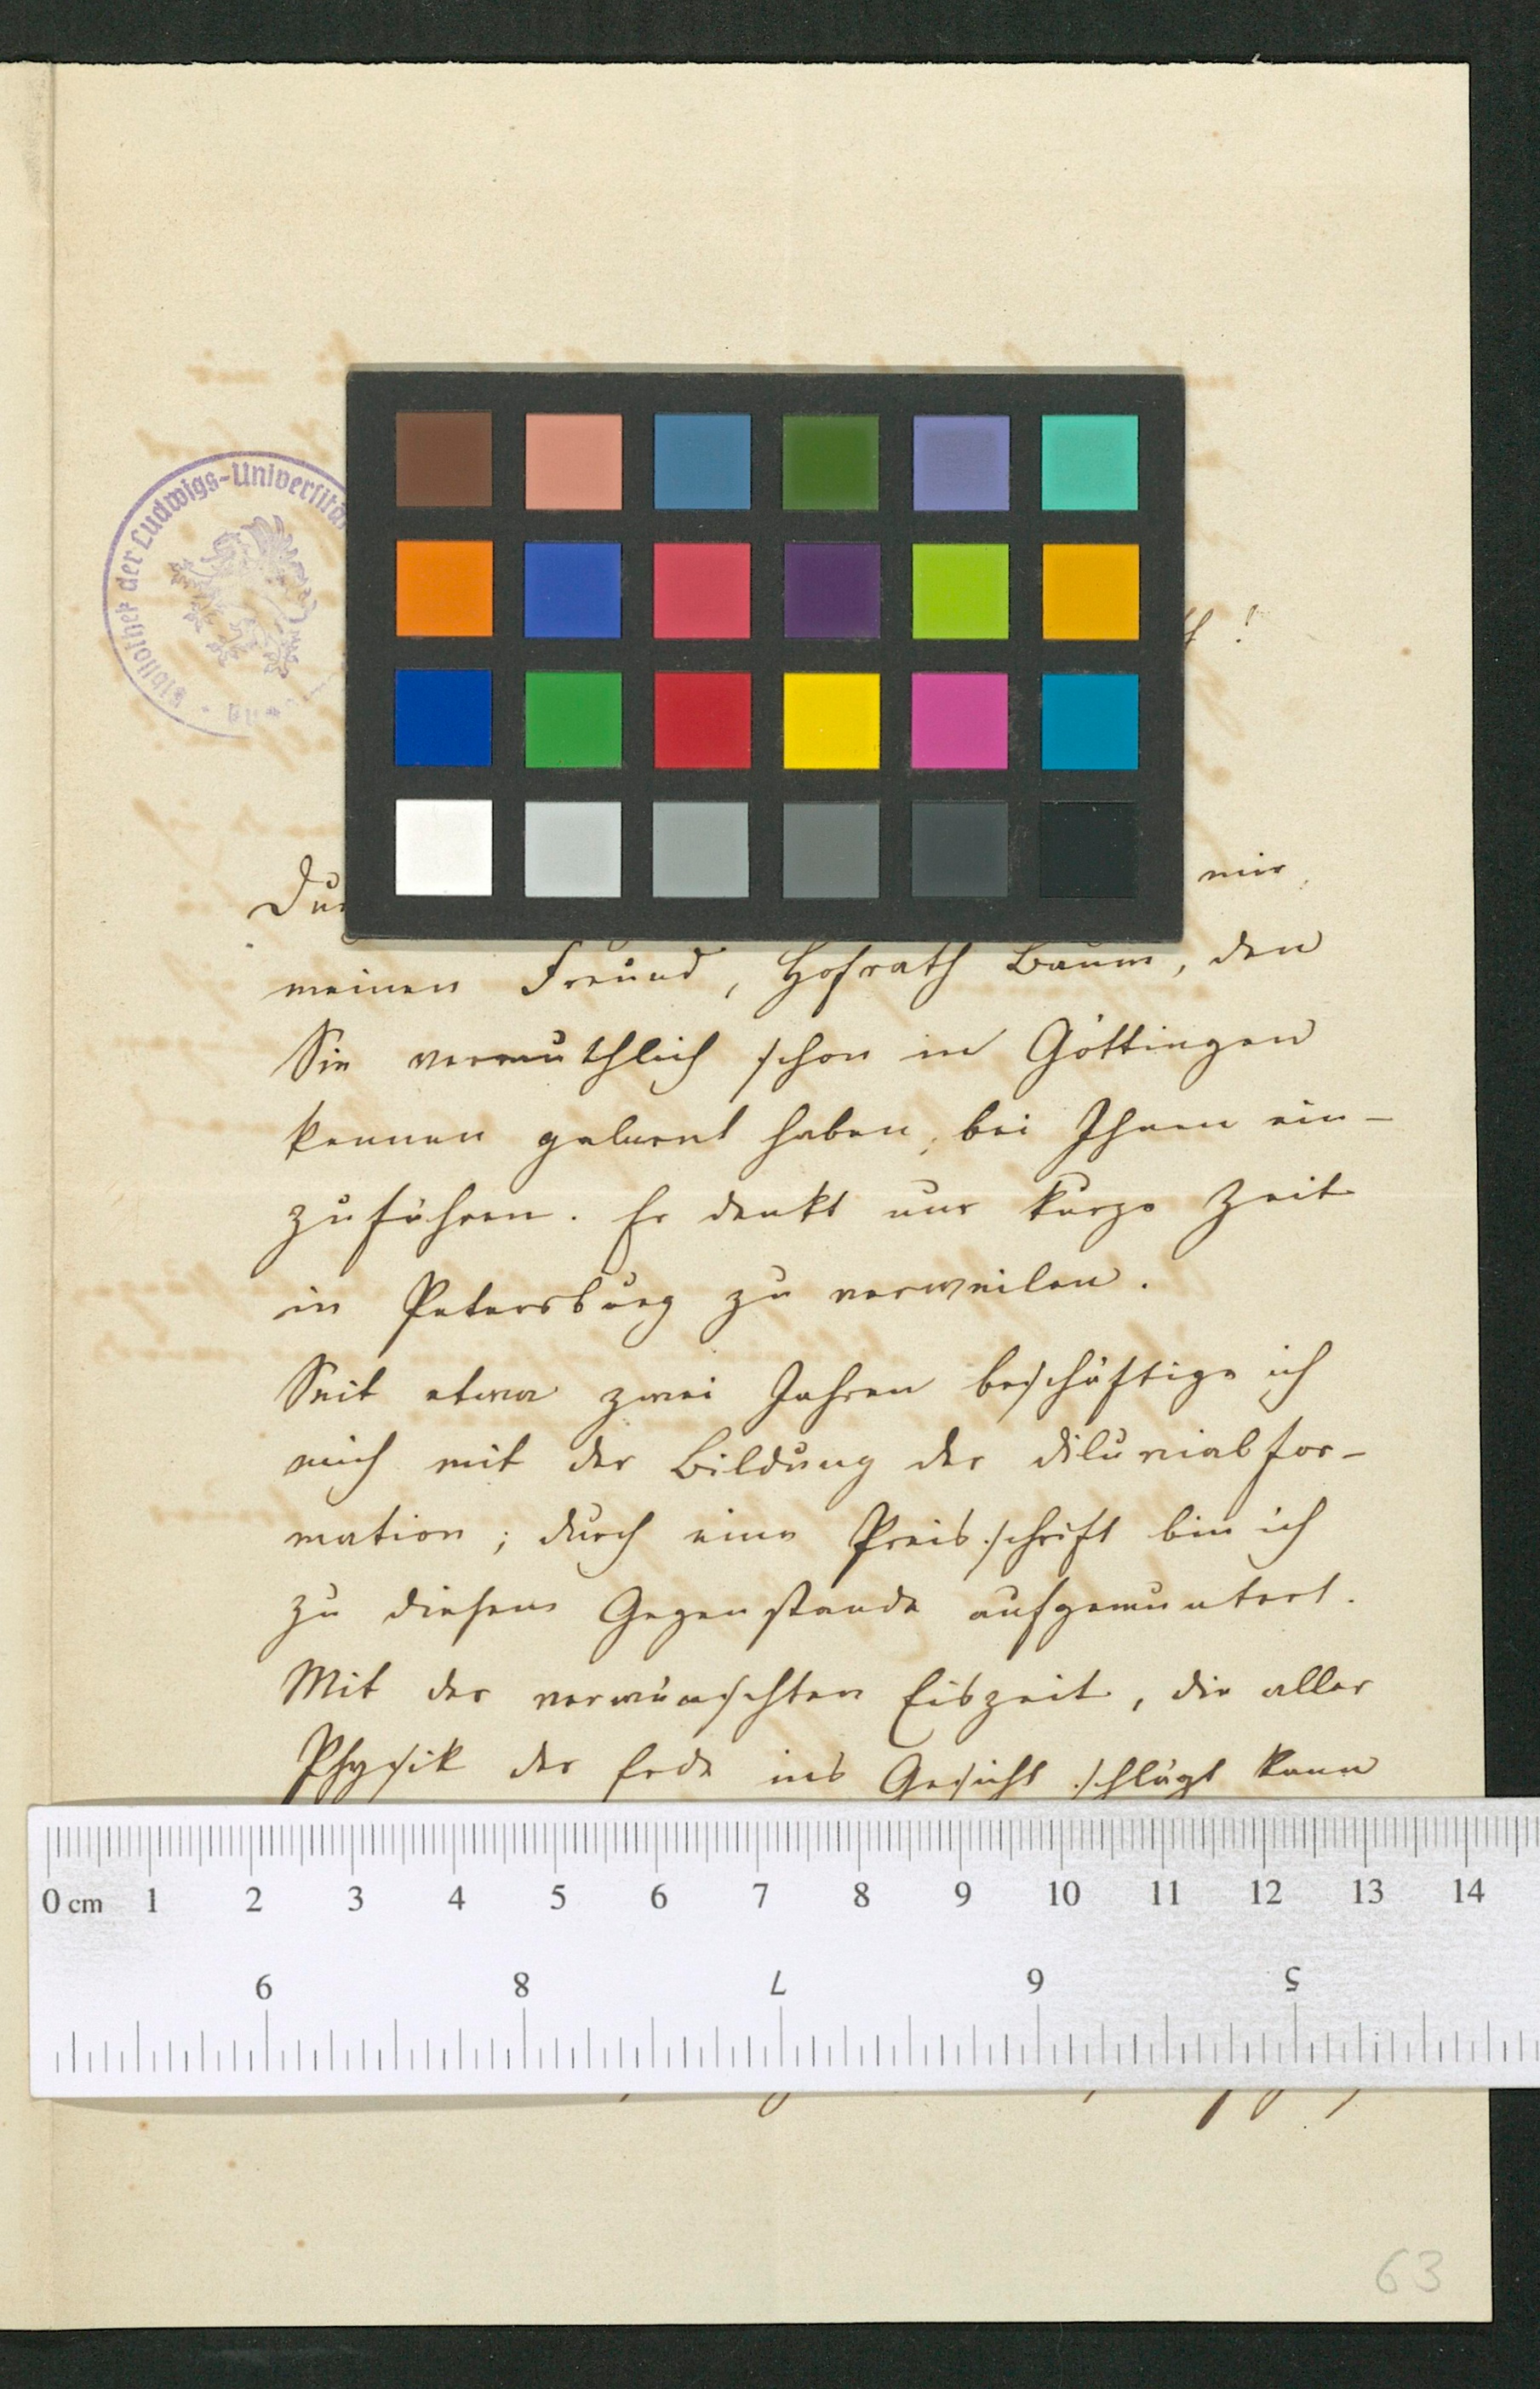 Bibliothek der Ludwigs-Universität
!
mir
meinen Freund, Hofrath Baum, den
Sie vermuthlich schon in Göttingen
kennen gelernt haben, bei Ihnen ein-
zuführen. Er denkt nur kurze Zeit
in Petersburg zu verweilen.
Seit etwa zwei Jahren beschäftige ich
mich mit der Bildung der Diluvialfor-
mation; durch eine Preisschrift bin ich
zu diesem Gegenstande aufgemuntert.
Mit der verwünschten Eiszeit, die aller
Physik der Erde ins Gesicht schlägt kann
0 cm 1 2 3 4 5 6 7 8 9 10 11 12 13 14
9 8 7 6 5
63